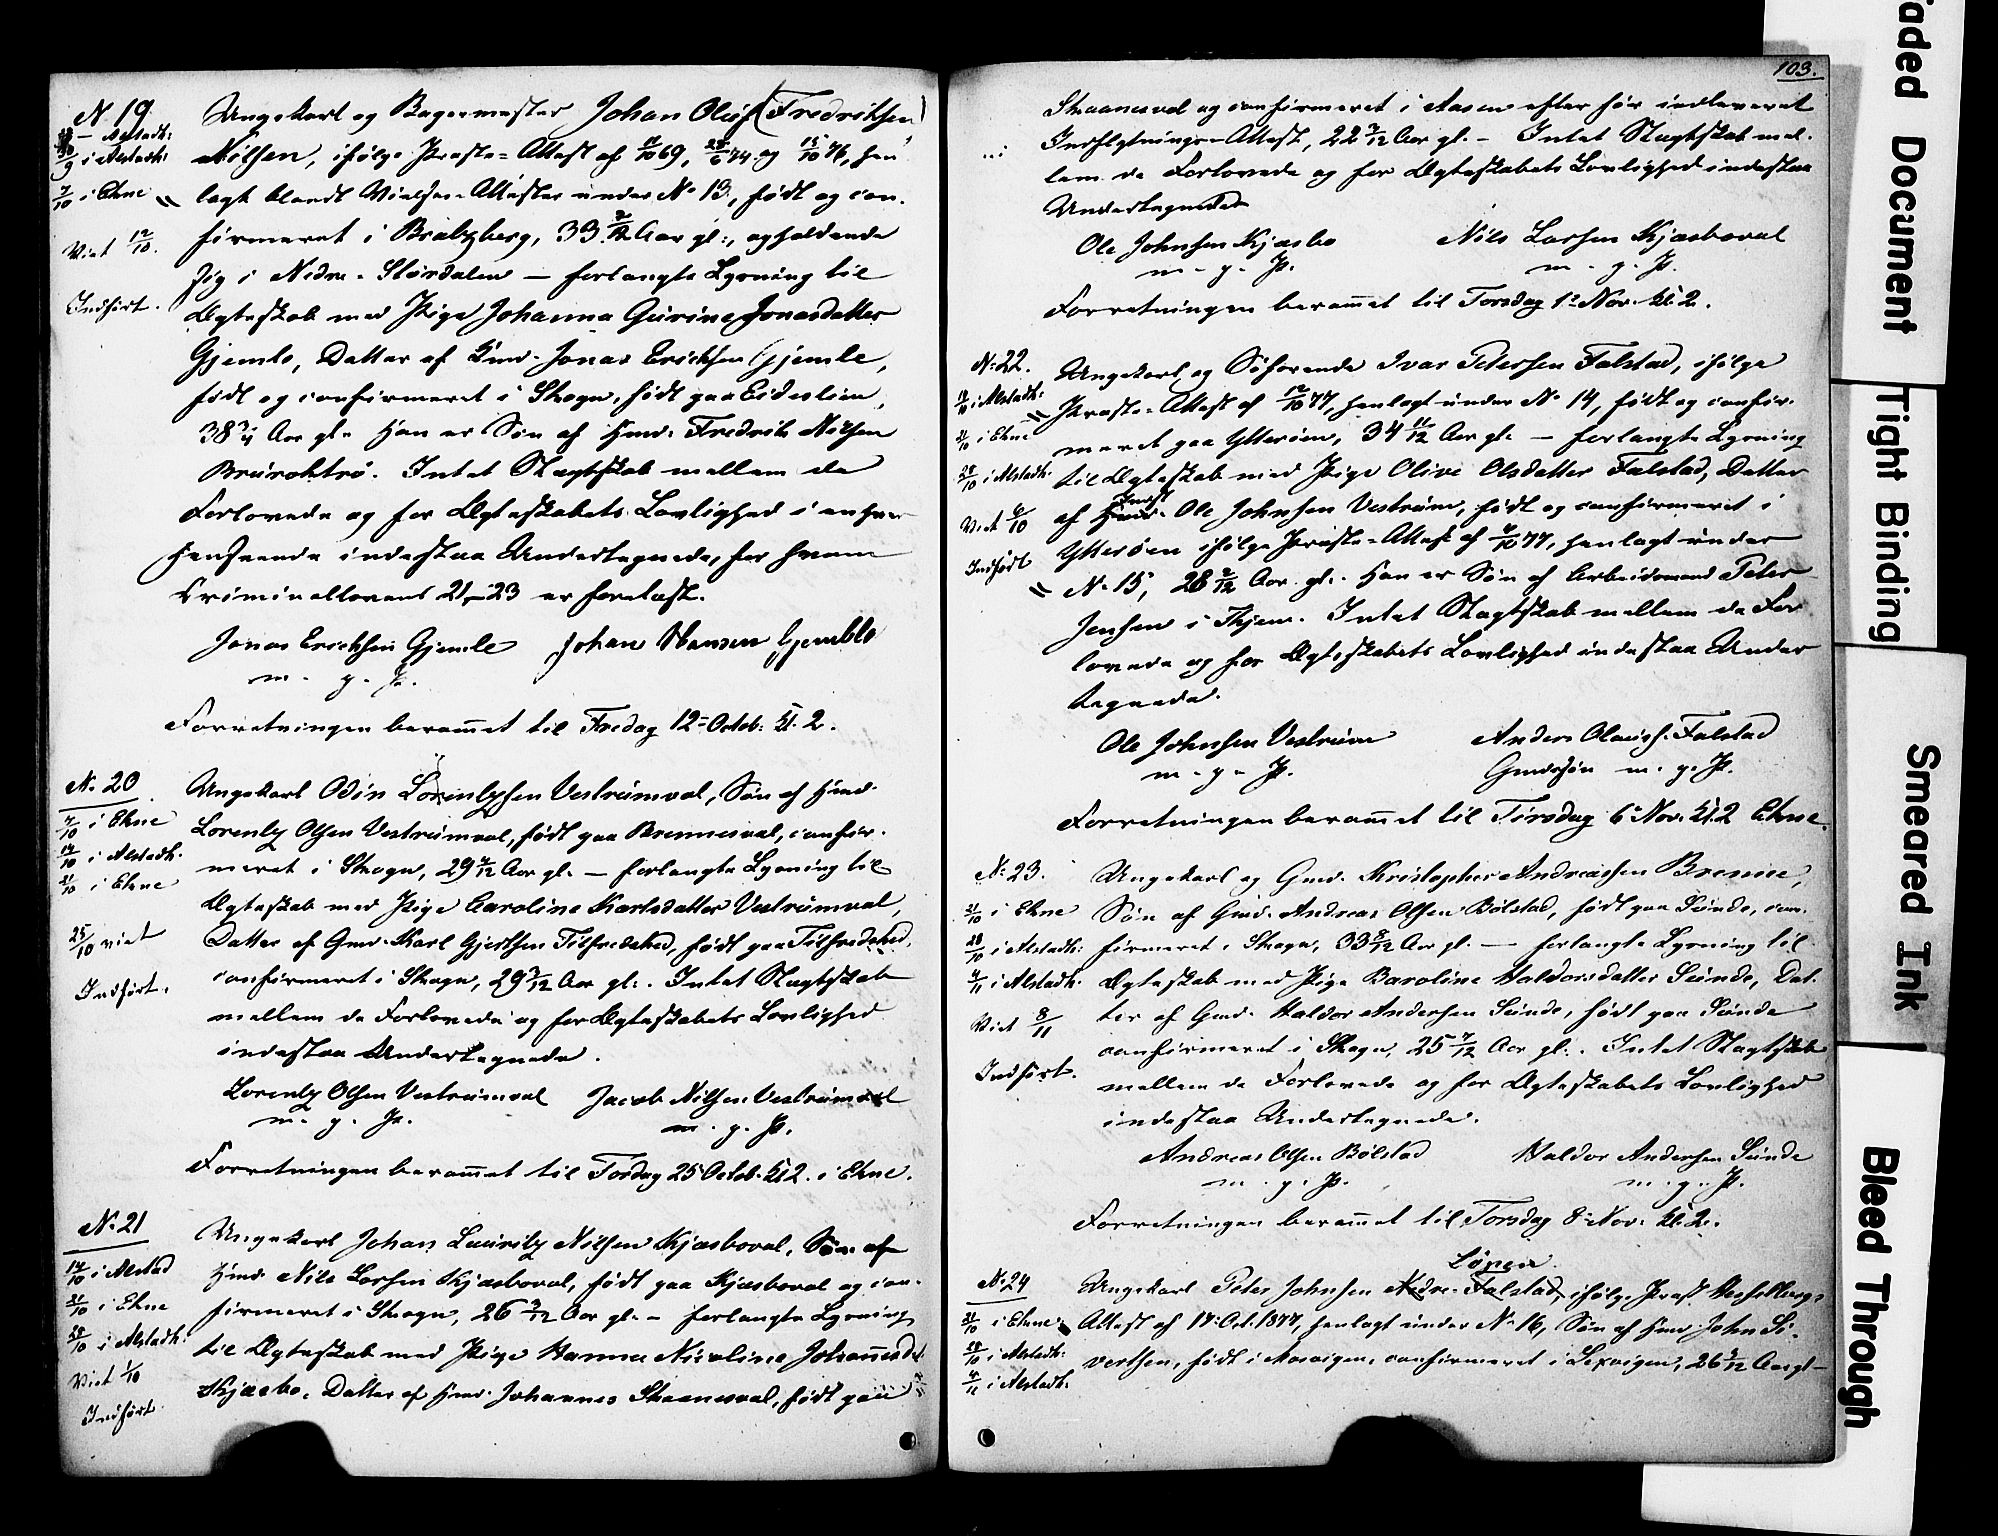 N. 19
i Alstadh:
30/9 i Alstadh:
7/10 i Ekne
Viet 12/10.
Indført.
Ungekarl og Bagermester Johan Oluf (Fredriksen)
Nilsen, ifølge Præste-Attest af 69, 74 og 76, hen-
lagt blandt Vielses-Attester under No 13, født og con-
firmeret i Bratsberg, 33 Aar gl:, opholdende
sig i Nedre-Størdalen — forlangte Lysning til
Ægteskab med Pige Johanna Gurine Jonasdatter
Gjemle, Datter af Jonas Erichsen Gjemle,
født og confirmeret i Skogn, født paa Eideslien,
38 3/4 Aar gl. Han er Søn af Hmd. Fredrik Nilsen
Intet Slægtskab mellem de
Forlovede og for Ægteskabets Lovlighed i enhver
Henseende indestaa Undertegnede, for hvem
Criminallovens 21,-23 er forelæst.
Jonas Erichsen Gjemle Johan Hansen Gjemble
m. p. P.
Forretningen beramet til Fredag 12= Octob: Kl. 2.
N. 20
7/10 i Ekne
14/10 i Alstadh:
21/10 i Ekne
25/10 viet
Indført.
Ungekarl Odin Lorentzsen Vestrumval, Søn af Hmd.
Lorentz Olsen Vestrumval, født paa Brennesval, confir-
meret i Skogn, 29 Aar gl. — forlangte Lysning til
Ægteskab med Pige Caroline Karlsdatter Vestrumval,
Datter af Gmd. Karl Gjertsen Tilfredshed, født paa Tilfredshed,
confirmeret i Skogn, 29 3/12 Aar gl:. Intet Slægtskab
mellem de Forlovede og for Ægteskabets Lovlighed
indestaa Undertegnede.
Lorentz Olsen Vestrumval Jacob Nilsen Vestrumval
m. p. P. m. p. P.
Forretningen beramet til Torsdag 25 Octob. Kl 2. i Ekne.
N. 21
14/10 i Alstad
21/10 i Ekne
28/10 i Alstadh:
Viet 1/10
Indført.
Ungekarl Johan Lauritz Nilsen Kjæsboval, Søn af
Hmd. Nils Larsen Kjæsboval, født paa Kjæsboval og con-
firmeret i Skogn, 26 3/12 Aar gl. — forlangte Lysning
til Ægteskab med Pige Hanna Nicoline Johannesdat
Kjæsbo, Datter af Hmd. Johannes Skaanesval, født paa
103.
Skaanesval og confirmeret i Aasen efter før indleveret
Indflytnings-Attest, 22 Aar gl. — Intet Slægtskab mel-
lem de Forlovede og for Ægteskabets Lovlighed indestaa
Undertegnede
Ole Johnsen Kjæsbo Nils Larsen Kjæsboval
m. p. P. m. p. P.
Forretningen beramet til Torsdag 1= Nov. Kl. 2.
N. 22.
14/10 i Alstadh:
21/10 i Ekne
28/10 i Alstadh:
Viet 6/10
Indført
Ungekarl og Søfarende Ivar Petersen Falstad, ifølge
Præste-Attest af 77, henlagt under No 14, født og confir-
meret paa Ytterøen, 34 11/12 Aar gl. — forlangte Lysning
til Ægteskab med Pige Olive Olsdatter Falstad, Datter
af Ole Johnsen Vestrum, født og confirmeret i
Ytterøen ifølge Præste-Attest af 77, henlagt under
N. 15, 28 Aar gl. Han er Søn af Arbeidsmand Peter
Jensen i Intet Slægtskab mellem de For
lovede og for Ægteskabets Lovlighed indestaa Under
tegnede.
Ole Johnsen Vestrum Anders Olaus. Falstad
m. p. P. Gmdssøn m. p. P.
Forretningen beramet til Tirsdag 6 Nov. Kl. 2 Ekne.
N. 23.
21/10 i Ekne
28/10 i Alstadh:
4/11 i Alstadh:
Viet 8/11
Indført.
Ungekarl og Gmd. Kristopher Andreassen Brenne,
Søn af Gmd. Andreas Olsen Bølstad, født paa Sunde, con-
firmeret i Skogn, 33 8/12 Aar gl. — forlangte Lysning til
Ægteskab med Pige Baroline Haldorsdatter Sunde, Dat-
ter af Gmd. Haldor Andersen Sunde, født paa Sunde
confirmeret i Skogn, 25 7/12 Aar gl:. Intet Slægtskab
mellem de Forlovede og for Ægteskabets Lovlighed
indestaa Undertegnede.
Andreas Olsen Bølstad Haldor Andersen Sunde
m. p. P. m. p. P.
Forretningen beramet til Torsdag 8 Nov. Kl. 2.
N. 24
21/10 i Ekne
28/10 i Alstadh:
4/11 i Alstadh:
Løpen.
Ungekarl Peter Johnsen Nedre-Falstad, ifølge Præst Hesselbergs
Attest af 17 Oct. 1877, henlagt under No 16, Søn af Hmd. John Si-
vertsen, født i Mosvigen, confirmeret i Lexvigen, 26 Aar gl —
Faded Document
Tight Binding
Smeared Ink
Bleed Through